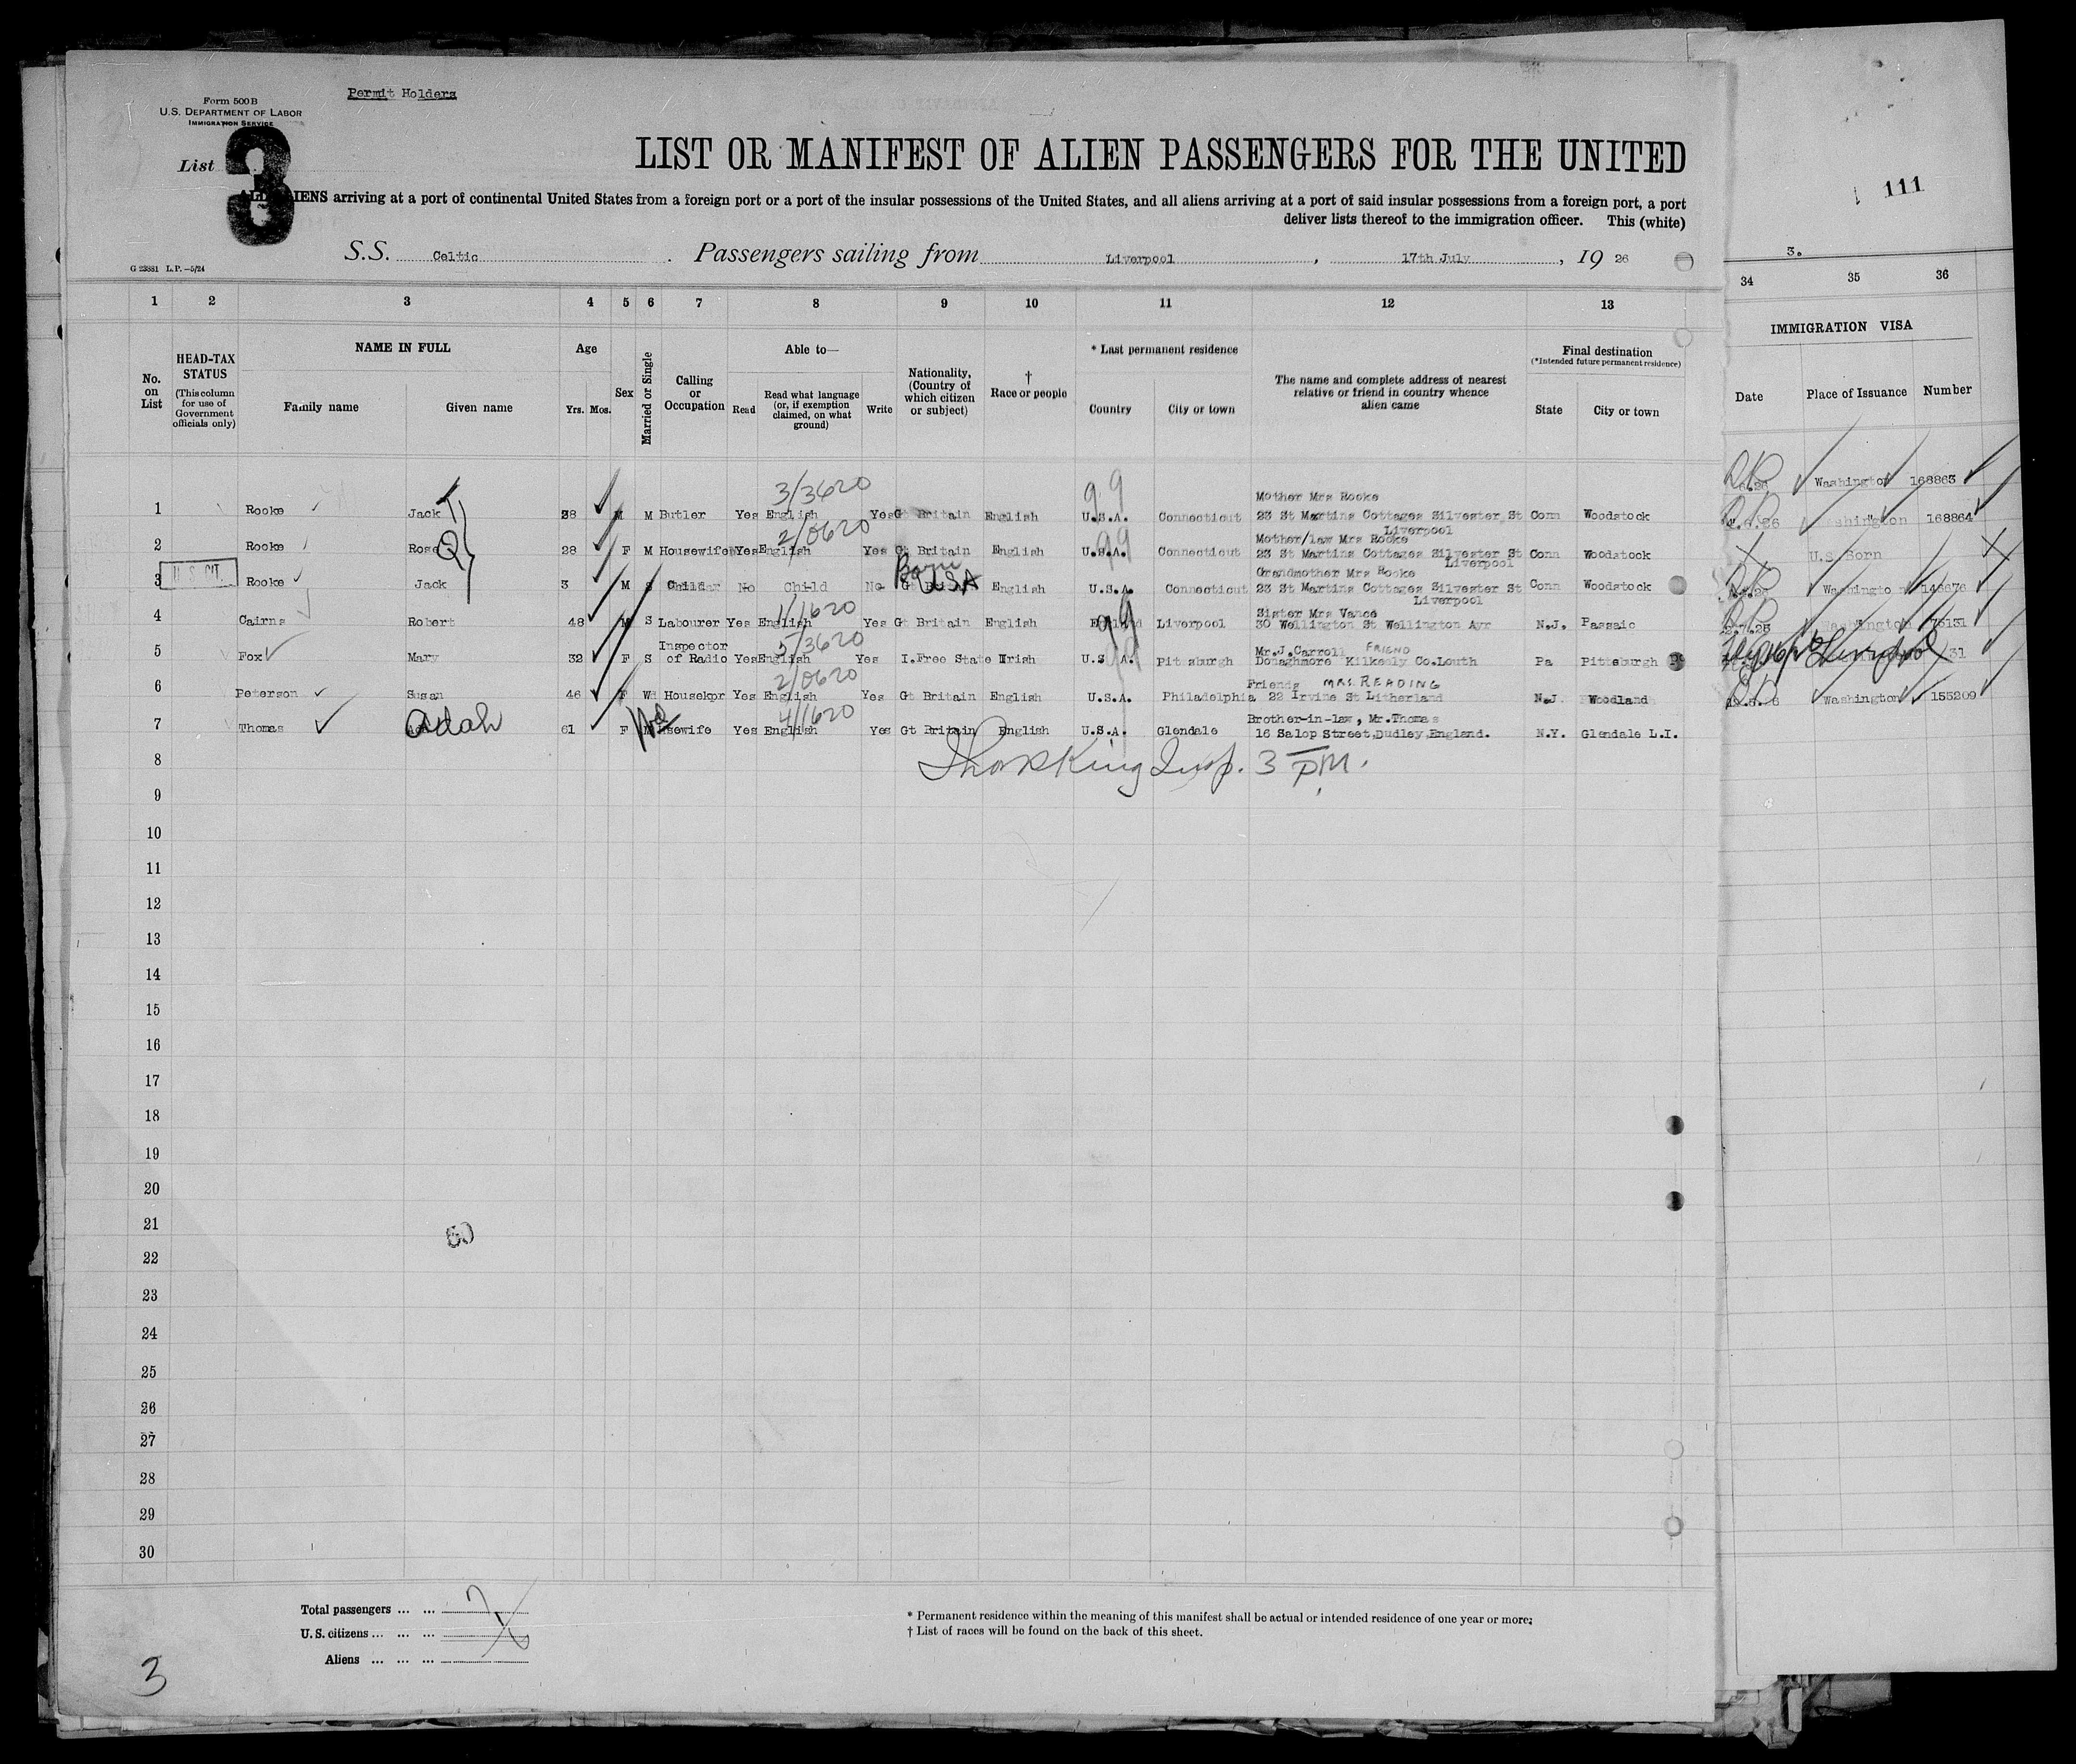 Permit Holders
Form 500 B
U.S. DEPARTMENT OF LABOR
IMMIGRATION SERVICE
List 3
LIST OR MANIFEST OF ALIEN PASSENGERS FOR THE UNITED
111
ALL ALIENS arriving at a port of continental United States from a foreign port or a port of the insular possessions of the United States, and all aliens arriving at a port of said insular possessions from a foreign port, a port
deliver lists thereof to the immigration officer. This (white)
S.S. Celtic . Passengers sailing from Liverpool , 17th July , 19 26
3.
G 23881 L.P.—5/24
1 2 3 4 5 6 7 8 9 10 11 12 13 34 35 36
No. on List
HEAD-TAX STATUS (This column for use of Government officials only)
NAME IN FULL
Family name Given name
Age
Yrs. Mos.
Sex
Married or Single
Calling or Occupation
Able to—
Read Read what language (or, if exemption claimed, on what ground) Write
Nationality, (Country of which citizen or subject)
† Race or people
* Last permanent residence
Country City or town
The name and complete address of nearest relative or friend in country whence alien came
Final destination
(*Intended future permanent residence)
State City or town
IMMIGRATION VISA
Date Place of Issuance Number
3/3620 99 Mother Mrs Rooke Washington 168863
1 Rooke Jack 28 M M Butler Yes English Yes Gt Britain English U.S.A. Connecticut 23 St Martins Cottages Silvester St Conn Woodstock
Liverpool
2/0620 99 Mother/law Mrs Rooke Washington 168864
2 Rooke Rose 28 F M Housewife Yes English Yes Gt Britain English U.S.A. Connecticut 23 St Martins Cottages Silvester St Conn Woodstock
Liverpool
U.S. CIT. Born USA Grandmother Mrs Rooke U.S. Born
3 Rooke Jack 3 M S Child No Child No English U.S.A. Connecticut 23 St Martins Cottages Silvester St Conn Woodstock
Liverpool
1/1620 99 Sister Mrs Vance Washington
4 Cairns Robert 48 M S Labourer Yes English Yes Gt Britain English Liverpool 30 Wellington St Wellington Ayr N.J. Passaic
5/3620 Mr.J.Carroll FRIEND Washington
5 Fox Mary 32 F S Inspector of Radio Yes English Yes I.Free State Irish U.S.A. Pittsburgh Donaghmore Kilkeely Co.Louth Pa Pittsburgh
Liverpool
2/0620 Friends MRS. READING
6 Peterson Susan 46 F Wd Housekpr Yes English Yes Gt Britain English U.S.A. Philadelphia 22 Irvine St Litherland N.J. Woodland Washington 155209
4/1620 Brother-in-law, Mr.Thomas
7 Thomas Adah 61 F Wd Housewife Yes English Yes Gt Britain English U.S.A. Glendale 16 Salop Street,Dudley,England. N.Y. Glendale L.I.
8 Insp. 3 PM.
9
10
11
12
13
14
15
16
17
18
19
20
21
60
22
23
24
25
26
27
28
29
30
Total passengers ... ... 7
U.S. citizens ... ... ...
Aliens ... ... ...
* Permanent residence within the meaning of this manifest shall be actual or intended residence of one year or more;
† List of races will be found on the back of this sheet.
3